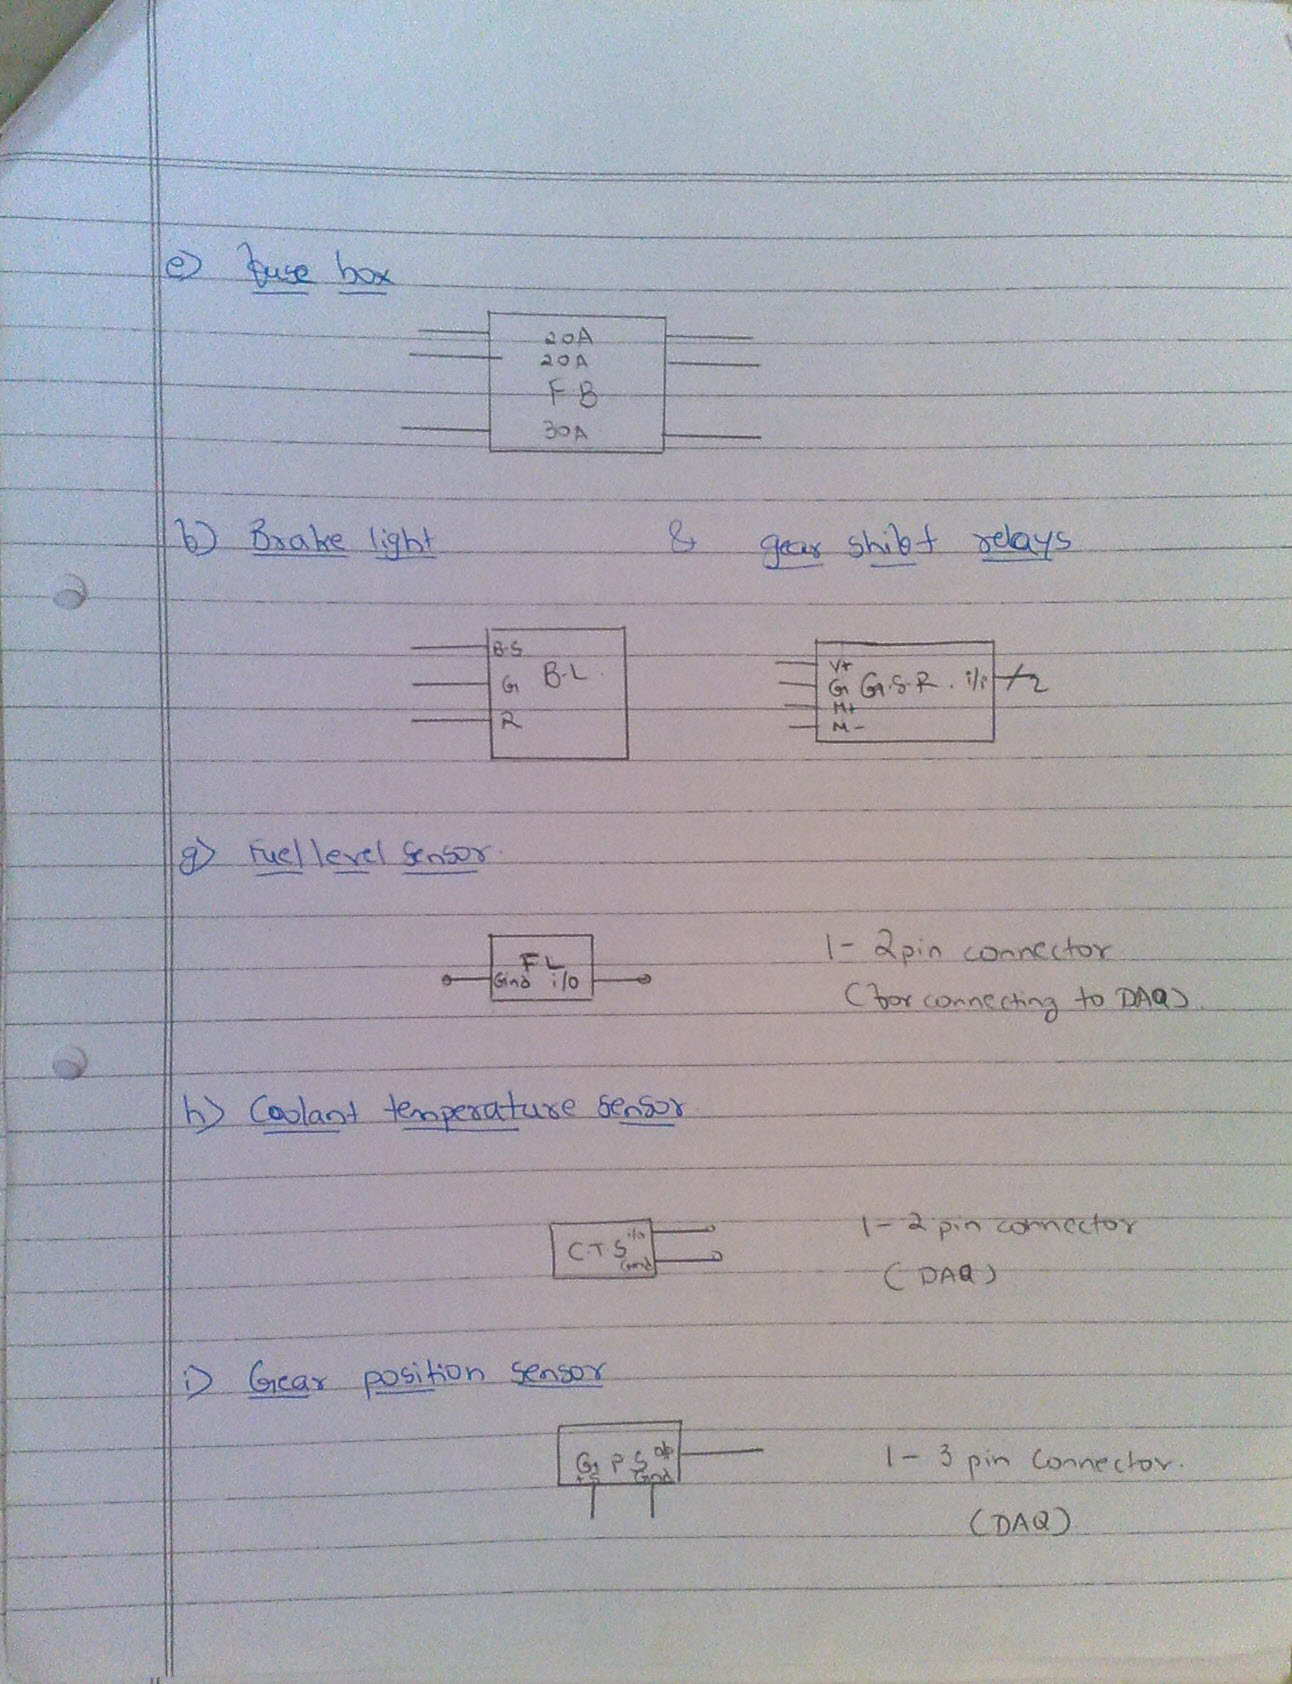 e) Fuse box
20A
20A
F B
30A
f) Brake light & gear shift relays
B.S
G B.L.
R
V+
G G.S.R. i/p 2
M+
M-
g) Fuel level sensor.
F L
Gnd i/o
1- 2 pin connector
(for connecting to DAQ).
h) Coolant temperature sensor.
C.T.S i/o
Gnd
1- 2 pin connector
(DAQ)
i) Gear position sensor
G P S o/p
+5 Gnd
1- 3 pin connector.
(DAQ)